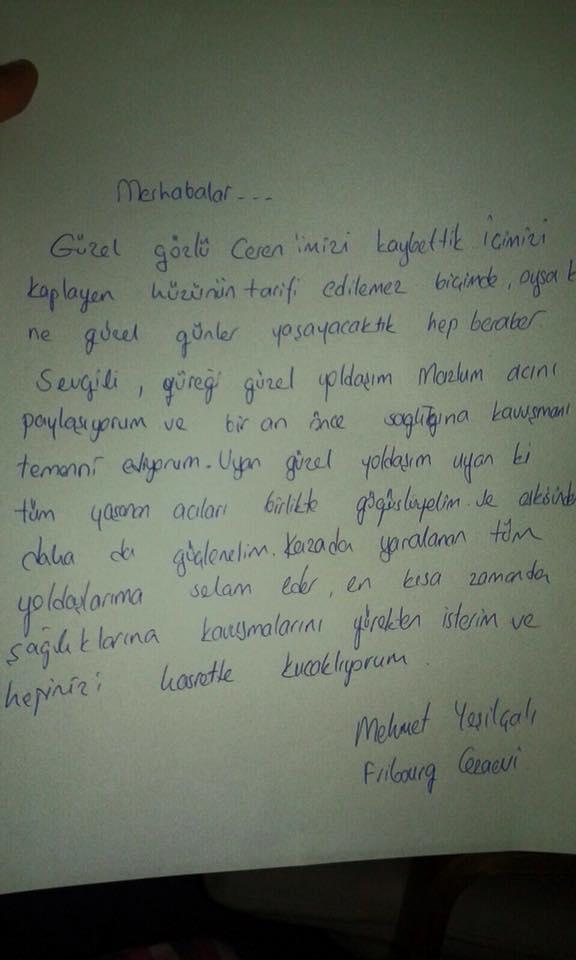 Merhabalar...
Güzel gözlü Ceren'imizi kaybettik İçimizi
kaplayen hüzünün tarifi edilemez biçimde, oysa k
ne güzel günler yaşayacaktık hep beraber
Sevgili, yüreği güzel yoldaşım Mazlum acını
paylaşıyorum ve bir an önce sağlığına kavuşmanı
temenni ediyorum. Uyan güzel yoldaşım uyan ki
tüm yaşanan acıları birlikte göğüsliyelim ve
daha da güçlenelim. Kazada yaralanan tüm
yoldaşlarıma selam eder, en kısa zamanda
sağlıklarına kavuşmalarını yürekten isterim ve
hepinizi hasretle kucaklıyorum.
Mehmet Yeşilçalı
Fribourg Cezaevi